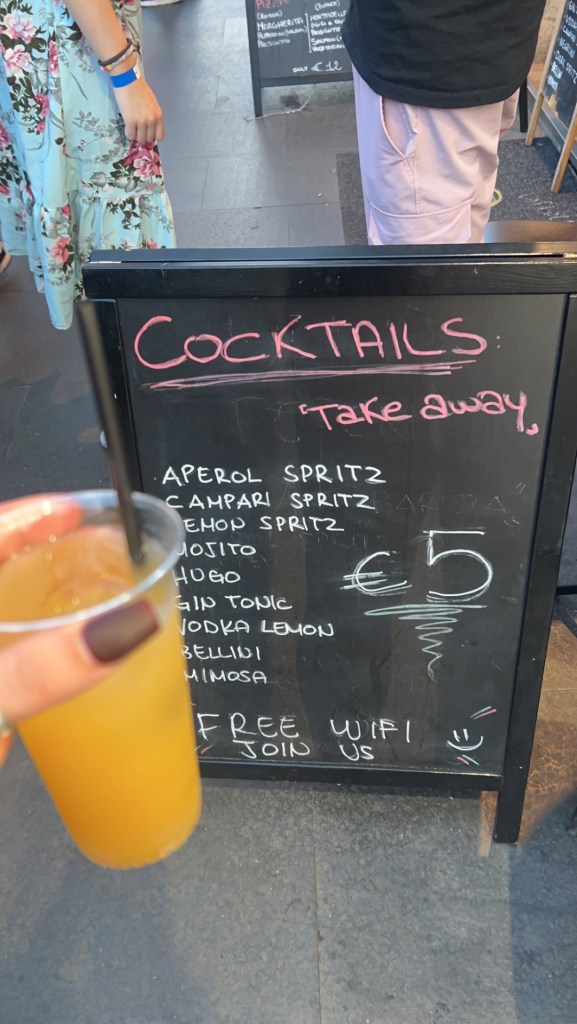 (ROSSA)
MARGHERITA
COCKTAILS:
"Take away"
APEROL SPRITZ
CAMPARI SPRITZ
LEMON SPRITZ
MOJITO
HUGO
GIN TONIC
VODKA LEMON
BELLINI
MIMOSA
€5
FREE WIFI
JOIN US